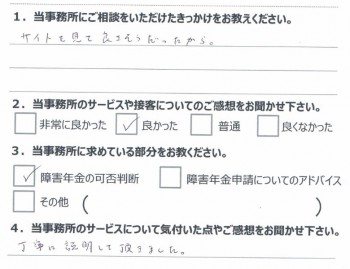 1．当事務所にご相談をいただけたきっかけをお教えください。
サイトを見て良さそうだったから。
2．当事務所のサービスや接客についてのご感想をお聞かせ下さい。
□非常に良かった ☑良かった □普通 □良くなかった
3．当事務所に求めている部分をお教ください。
☑障害年金の可否判断 □障害年金申請についてのアドバイス
□その他（ ）
4．当事務所のサービスについて気付いた点やご感想をお聞かせ下さい。
丁寧に説明して頂きました。